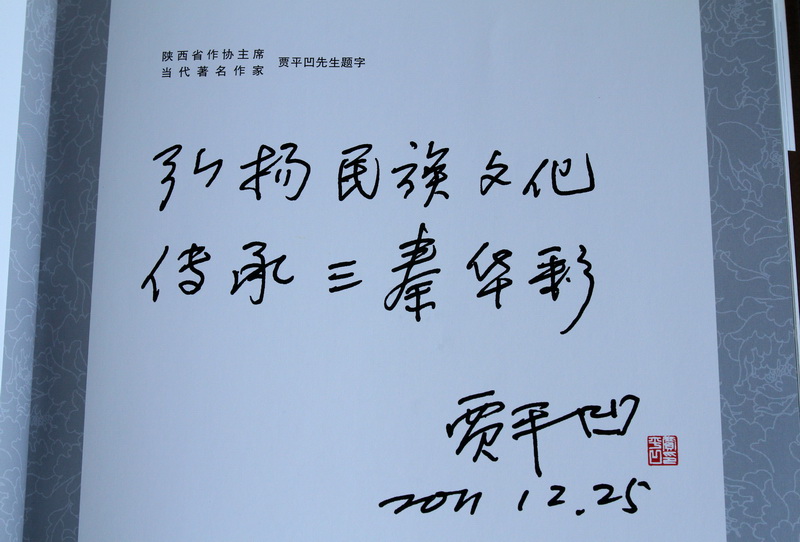 陕西省作协主席
当代著名作家
贾平凹先生题字
弘扬民族文化
传承三秦华彩
贾平凹
2011 12.25